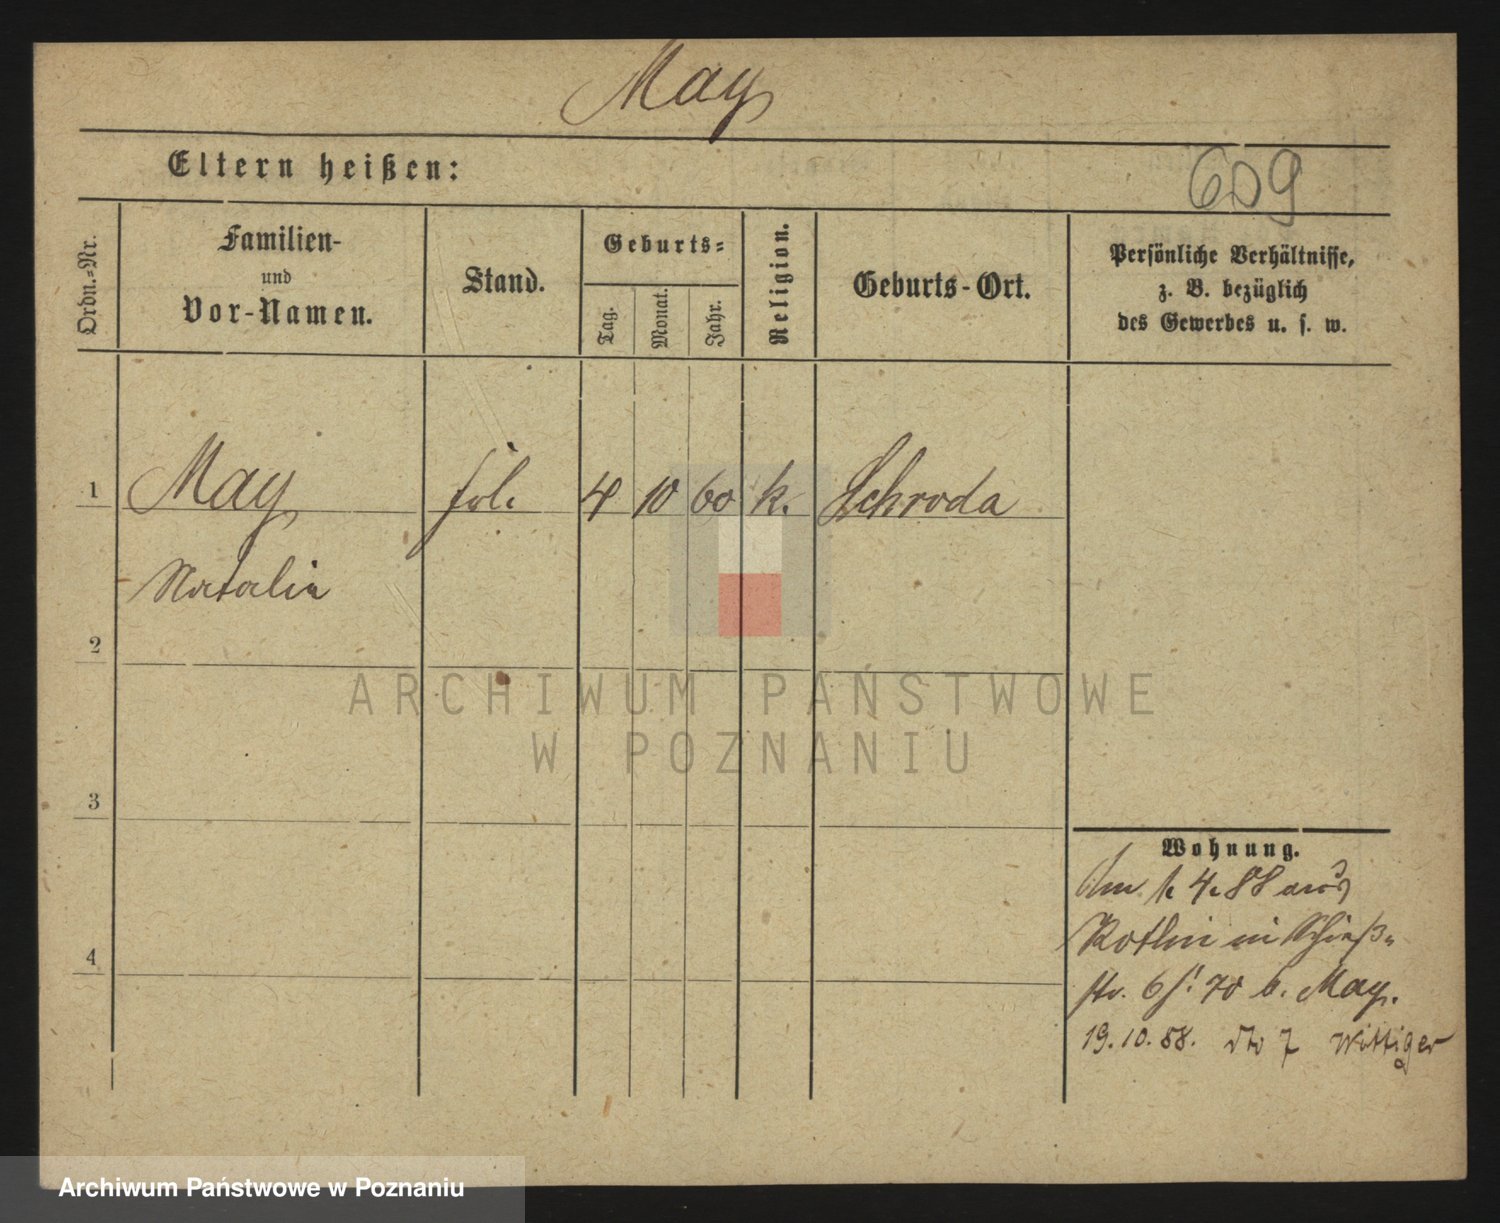 May
Eltern heißen:
609
Ordn.-Nr.
Familien-
und
Vor-Namen.
Stand.
Geburts-
Tag.
Monat.
Jahr.
Religion.
Geburts-Ort.
Persönliche Verhältnisse,
z. B. bezüglich
des Gewerbes u. s. w.
1 May 4 10 60 k. Schroda
Natalie
2
3
4
Wohnung.
Am 1. 4. 88 aus
in Schieß-
str. 6 70 b. May.
19. 10. 88. dto 7 Wittiger
ARCHIWUM PAŃSTWOWE
W POZNANIU
Archiwum Państwowe w Poznaniu